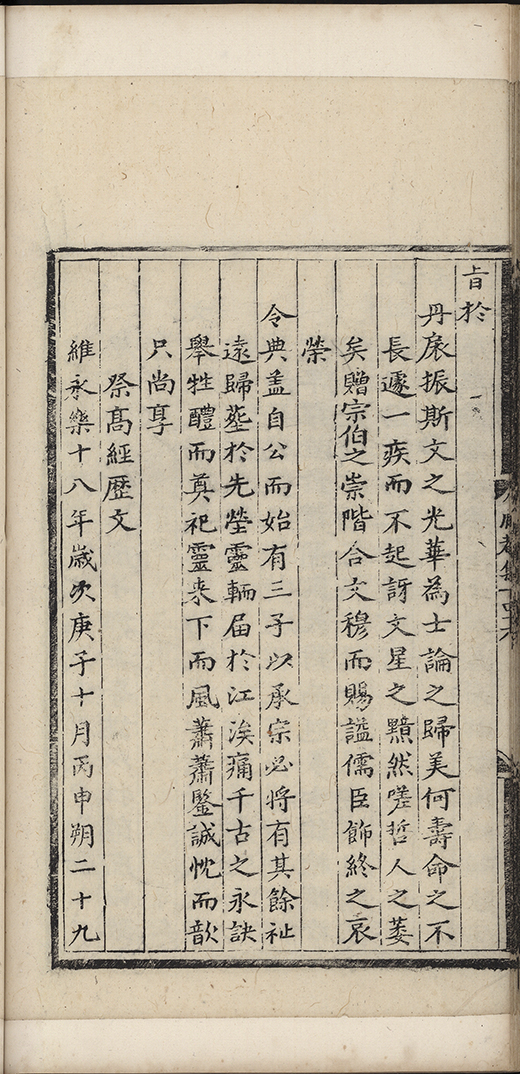 旨於
丹扆振斯文之光華為士論之歸美何壽命之不
長遽一疾而不起訝文星之黯然嗟哲人之萎
矣贈宗伯之崇階合文穆而賜謚儒臣飾終之哀
榮
令典盖自公而始有三子以承宗必將有其餘祉
遠歸塟於先塋靈輀届於江涘痛千古之永訣
舉牲醴而奠祀靈来下而風蕭蕭鑒誠忱而歆
只尚享
祭髙經歷文
維永樂十八年歲次庚子十月丙申朔二十九